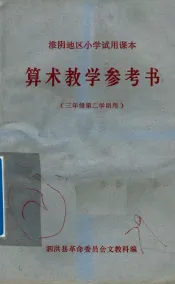 淮阴地区小学试用课本
算术教学参考书
(三年级第二学期用)
泗洪县革命委员会文教科编